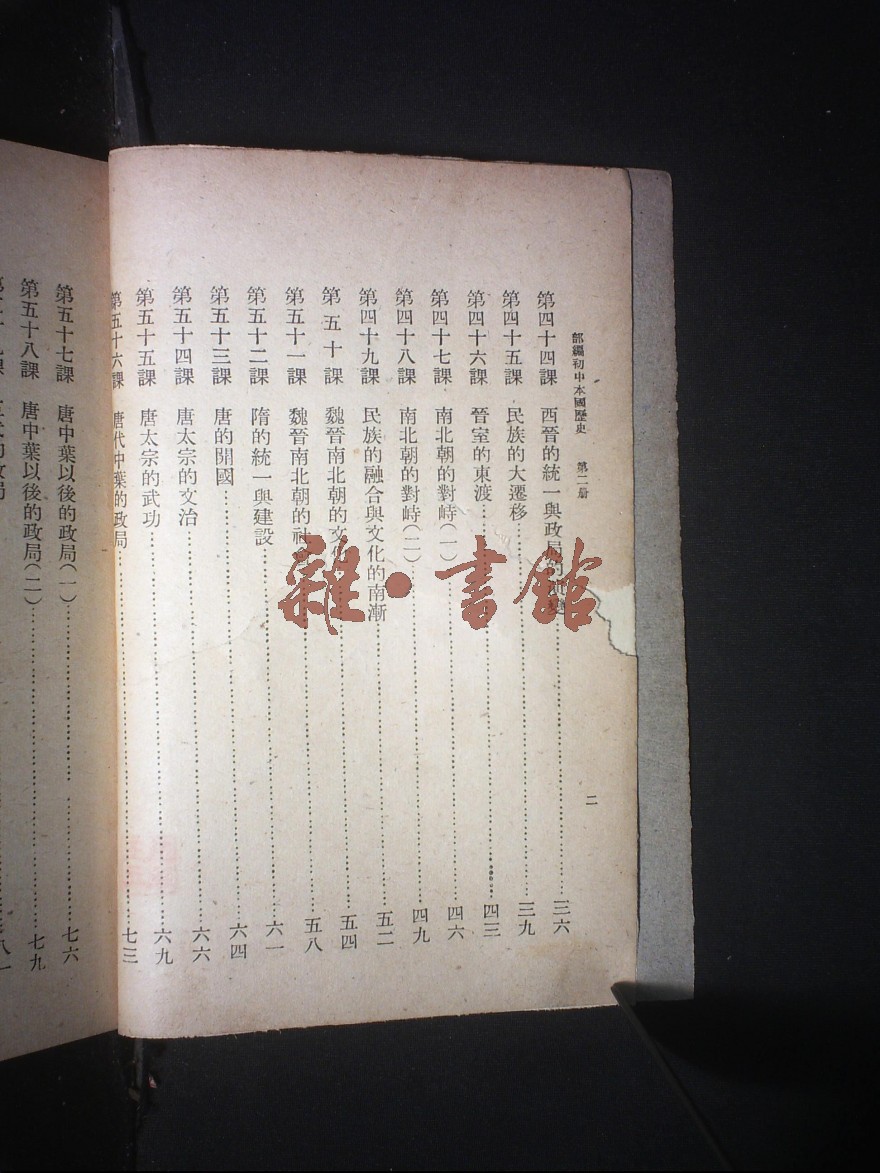 部編初中本國歷史 第二册
二
第四十四課 西晉的統一與政局的
第四十五課 民族的大遷移……三九
第四十六課 晉室的東渡……四三
第四十七課 南北朝的對峙(一)……四六
第四十八課 南北朝的對峙(二)……四九
第四十九課 民族的融合與文化的南漸……五二
第五十課 魏晉南北朝的文化……五四
第五十一課 魏晉南北朝的社會……五八
第五十二課 隋的統一與建設……六一
第五十三課 唐的開國……六四
第五十四課 唐太宗的文治……六六
第五十五課 唐太宗的武功……六九
第五十六課 唐代中葉的政局……七三
第五十七課 唐中葉以後的政局(一)……七六
第五十八課 唐中葉以後的政局(二)……七九
雜·書館